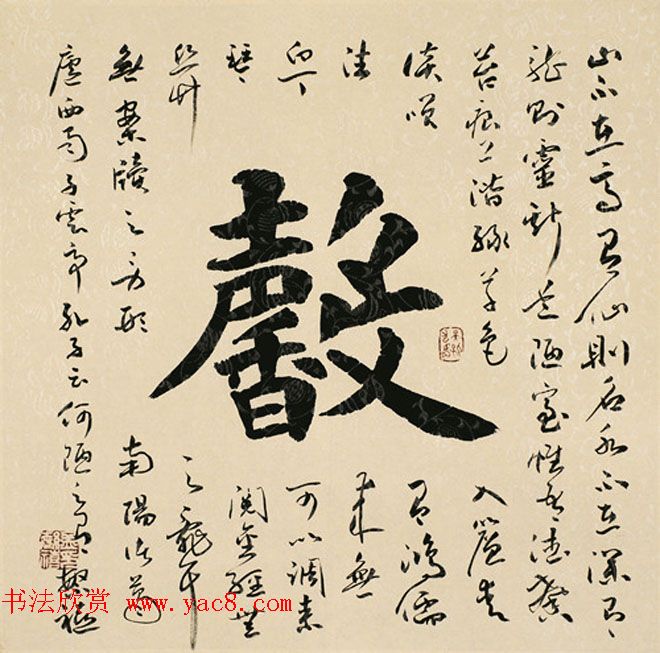 山不在高有仙則名水不在深有
龍則靈斯是陋室惟吾德馨
苔痕上階綠草色
入簾青
談笑
有鴻儒
往
來無
白丁
可以調素
琴
閱金經無
絲竹
之亂耳
無案牘之勞形
南陽諸葛
廬西蜀子雲亭孔子云何陋之有
馨
书法欣赏 www.yac8.com